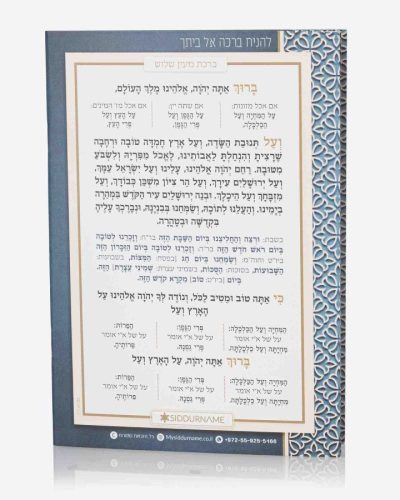 להניח ברכה אל ביתך
ברכת מעין שלוש
בָּרוּךְ אַתָּה יְהֹוָה, אֱלֹהֵינוּ מֶלֶךְ הָעוֹלָם,
אם אכל מזונות: אם שתה יין: אם אכל
עַל הַמִּחְיָה וְעַל עַל הַגֶּפֶן וְעַל עַל הָעֵץ וְעַל
הַכַּלְכָּלָה, פְּרִי הַגֶּפֶן, פְּרִי הָעֵץ,
וְעַל תְּנוּבַת הַשָּׂדֶה, וְעַל אֶרֶץ חֶמְדָּה טוֹבָה וּרְחָבָה
שֶׁרָצִיתָ וְהִנְחַלְתָּ לַאֲבוֹתֵינוּ, לֶאֱכֹל מִפִּרְיָהּ וְלִשְׂבֹּעַ
מִטּוּבָהּ. רַחֵם יְהֹוָה אֱלֹהֵינוּ, עָלֵינוּ וְעַל יִשְׂרָאֵל עַמָּךְ,
וְעַל יְרוּשָׁלַיִם עִירָךְ, וְעַל הַר צִיּוֹן מִשְׁכַּן כְּבוֹדָךְ, וְעַל
מִזְבָּחָךְ וְעַל הֵיכָלָךְ. וּבְנֵה יְרוּשָׁלַיִם עִיר הַקֹּדֶשׁ בִּמְהֵרָה
בְיָמֵינוּ. וְהַעֲלֵנוּ לְתוֹכָהּ, וְשַׂמְּחֵנוּ בְּבִנְיָנָהּ, וּנְבָרְכָךְ עָלֶיהָ
בִּקְדֻשָּׁה וּבְטָהֳרָה.
בשבת: וּרְצֵה וְהַחֲלִיצֵנוּ בְּיוֹם הַשַּׁבָּת הַזֶּה בר״ח: וְזָכְרֵנוּ לְטוֹבָה
בְּיוֹם רֹאשׁ חֹדֶשׁ הַזֶּה בר״ה: וְזָכְרֵנוּ לְטוֹבָה בְּיוֹם הַזִּכָּרוֹן הַזֶּה
ביו״ט וחוה״מ: וְשַׂמְּחֵנוּ בְּיוֹם חַג [בפסח: הַמַּצּוֹת, בשבועות:
הַשָּׁבוּעוֹת, בסוכות: הַסֻּכּוֹת, בשמיני עצרת: שְׁמִינִי עֲצֶרֶת] הַזֶּה.
[ביו״ט: בְּיוֹם] טוֹב] מִקְרָא קֹדֶשׁ הַזֶּה.
כִּי אַתָּה טוֹב וּמֵטִיב לַכֹּל, וְנוֹדֶה לְּךָ יְהֹוָה אֱלֹהֵינוּ עַל
הָאָרֶץ וְעַל
הַמִּחְיָה וְעַל הַכַּלְכָּלָה: פְּרִי הַגֶּפֶן: הַפֵּרוֹת:
על של א״י אומר על של א״י אומר על של א״י אומר
מִחְיָתָהּ וְעַל כַּלְכָּלָתָהּ. פְּרִי גַפְנָהּ. פֵּרוֹתֶיהָ.
בָּרוּךְ אַתָּה יְהֹוָה, עַל הָאָרֶץ וְעַל
הַמִּחְיָה וְעַל הַכַּלְכָּלָה: פְּרִי הַגֶּפֶן: הַפֵּרוֹת:
על של א״י אומר על של א״י אומר על של א״י אומר
מִחְיָתָהּ וְעַל כַּלְכָּלָתָהּ. פְּרִי גַפְנָהּ. פֵּרוֹתֶיהָ.
SIDDURNAME
כל הזכויות שמורות Mysiddurname.co.il +972-55-925-5166